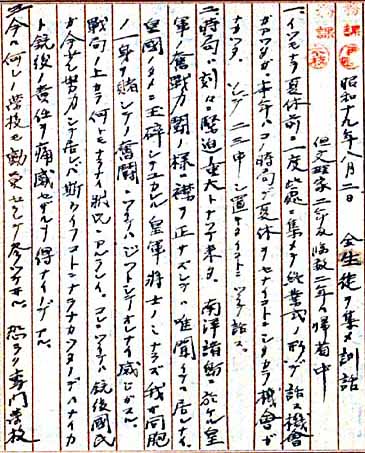 昭和十九年八月二日　全生徒ヲ集メ訓話
但文理家二合文臨数二年ハ帰省中
一、イツモナラ夏休前ニ一度皆ニ集メテ終業式ノ形デ話ス機會
ガアツタガ、本年ハコノ時局デ夏休ヲセナイコトニシタカラ機會ガ
ナカツタ。シテ二三申シ置キタイコトニツイテ話ス。
二、時局ハ刻々ニ緊迫重大トナツテ来タ。南洋諸島ニ於ケル皇
軍ノ奮戦力闘ノ様ハ襟ヲ正ナズシテハ唯聞イテハ居レナイ。
皇國ノタメニ玉砕シテユカレル皇軍将士ノミナラズ我ガ同胞
ノ一身ヲ賭シテノ奮闘ニツイテハジツトシテオレナイ感ジガスル。
戦局ノ上カラ何トモナイ状況ニアルラシイ。コレニツイテハ銃後國民
ガ今少シ努力シテ居レバ斯クイフコトニナラナカツタノデハナイカ
ト銃後ノ責任ヲ痛感セザルヲ得ナイノデアル。
三、今ハ何レノ學校モ勤労セシテ居ツテオル。恐ラク専門學校